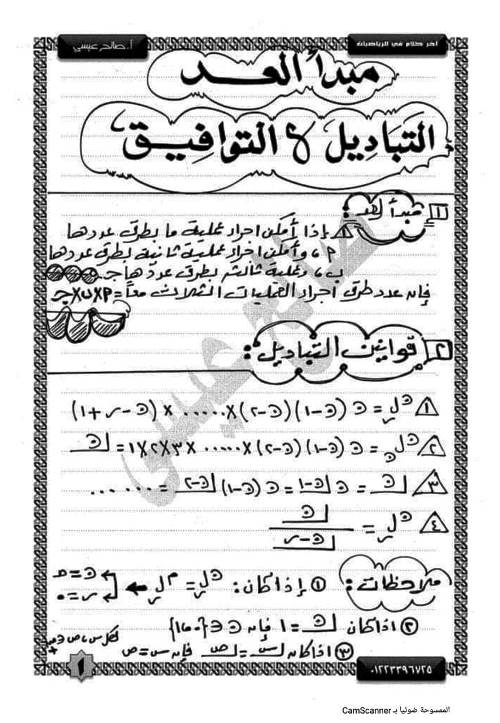 آخر كلام في الرياضيات
أ. صالح عيسى
مبدأ العد
التباديل والتوافيق
١ مبدأ العد:
١ إذا أمكن اجراء عملية ما بطرق عددها
م، وأمكن اجراء عملية ثانية بطرق عددها
ب، وعملية ثالثة بطرق عددها جـ
فإن عدد طرق اجراء العمليات الثلاث معاً = م×ب×جـ
٢ قوانين التباديل:
١ ﻥلر = ن(ن-١)(ن-٢)×.....×(ن-ر+١)
٢ ﻥلن = ن(ن-١)(ن-٢)×.....×٣×٢×١ = ⌊ن
٣ ⌊ن = ن ⌊ن-١ = ن(ن-١) ⌊ن-٢ = ......
٤ ﻥلر = ⌊ن / ⌊ن-ر
ملاحظات: ① إذا كان: ﻥلر = ﻡلر ← ن = م
ر = ٠
② اذا كان ⌊ن = ١ فإن ن ∈ {٠،١}
③ اذا كان ⌊س = ⌊ص فإن س = ص
لكل س، ص ∈ ص+
١
٠١٢٢٣٣٩٦٧٢٥
صالح عيسى
الممسوحة ضوئيا بـ CamScanner